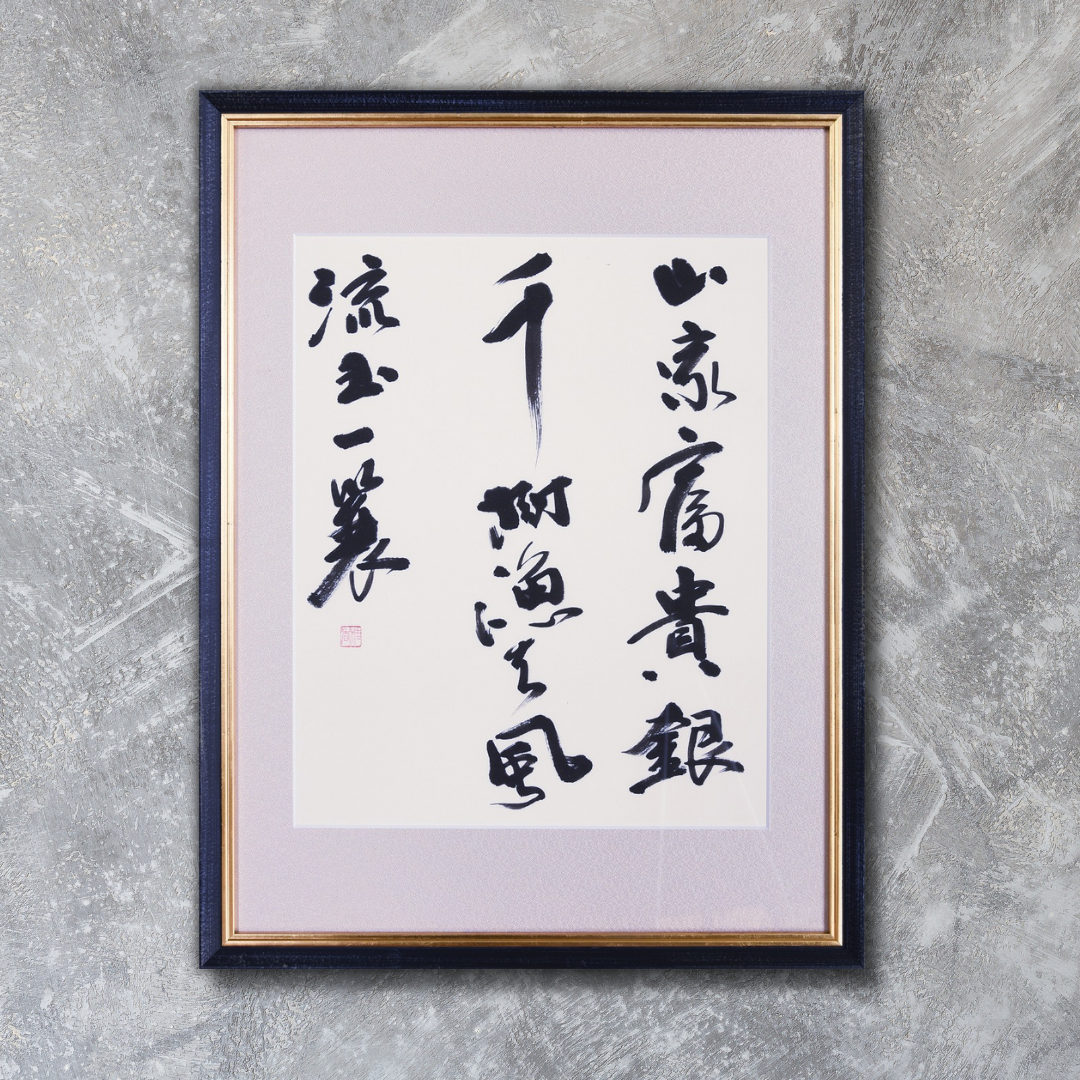 山家富貴銀
千樹漁夫風
流玉一簑